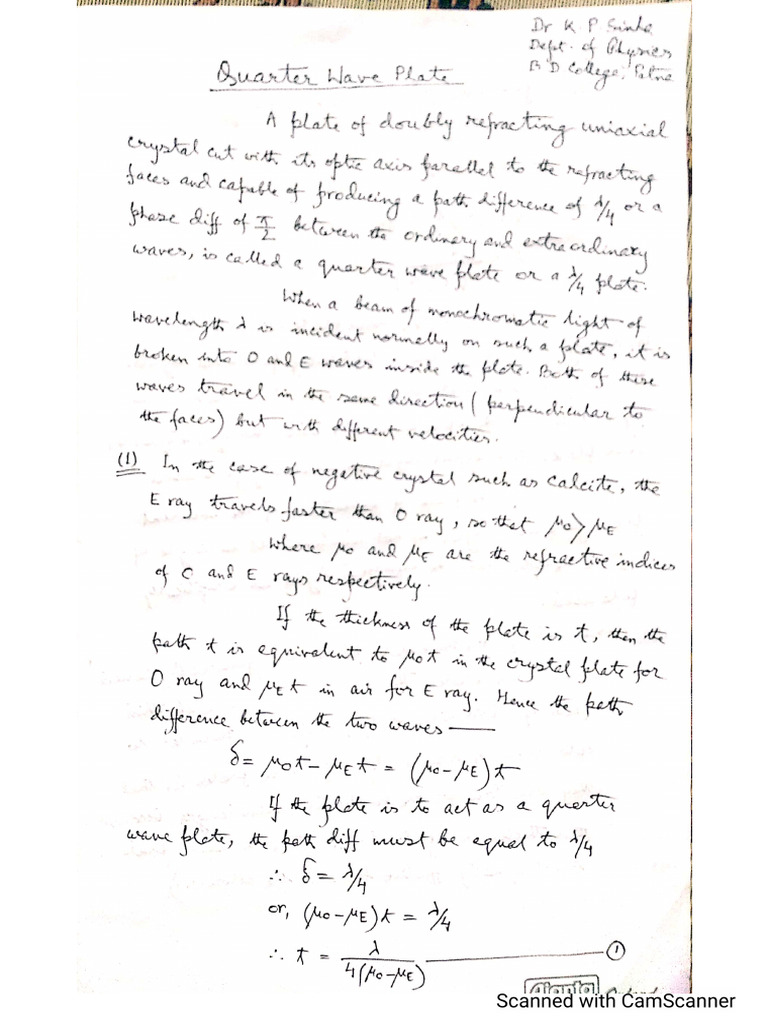 Dr K P Sinha
Dept. of Physics
B D College, Patna
Quarter Wave Plate
A plate of doubly refracting uniaxial
crystal cut with its optic axis parallel to the refracting
faces and capable of producing a path difference of λ/4 or a
phase diff of π/2 between the ordinary and extraordinary
waves, is called a quarter wave plate or a λ/4 plate.
When a beam of monochromatic light of
wavelength λ is incident normally on such a plate, it is
broken into O and E waves inside the plate. Both of these
waves travel in the same direction (perpendicular to
the faces) but with different velocities.
(1) In the case of negative crystal such as calcite, the
E ray travels faster than O ray, so that μO>μE
where μO and μE are the refractive indices
of O and E rays respectively.
If the thickness of the plate is t, then the
path t is equivalent to μOt in the crystal plate for
O ray and μEt in air for E ray. Hence the path
difference between the two waves —
δ = μOt - μEt = (μO - μE)t
If the plate is to act as a quarter
wave plate, the path diff must be equal to λ/4
∴ δ = λ/4
or, (μO - μE)t = λ/4
∴ t = λ/4(μO - μE) — (1)
Scanned with CamScanner